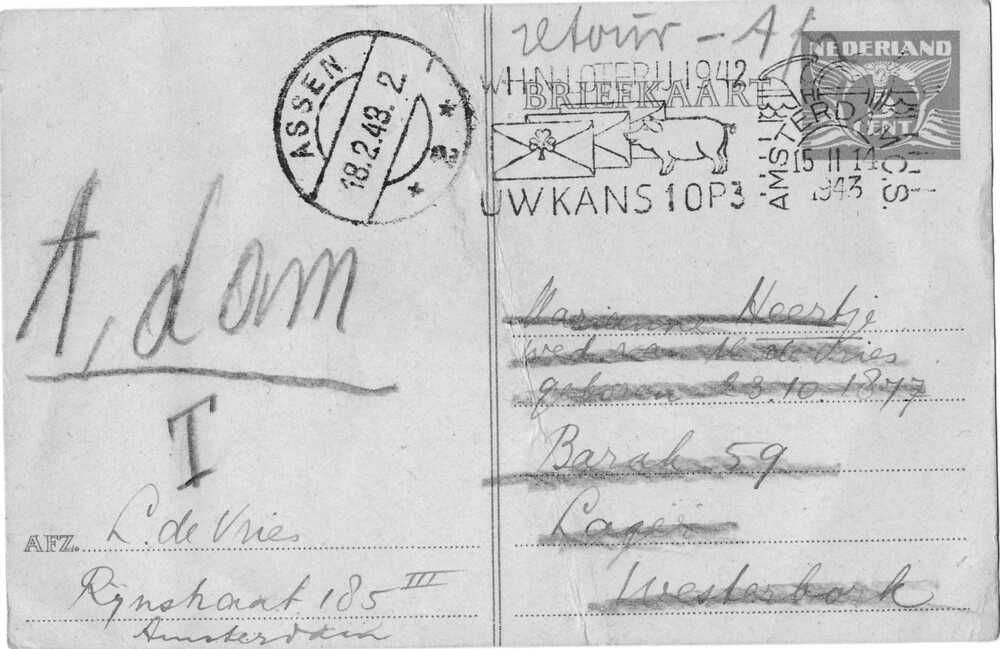 retour - Afz
NEDERLAND
WHN LOTERIJ 1942
BRIEFKAART
CENT
ASSEN
18.2.43. 2.
* 2 *
UW KANS 1 OP 3
AMSTERDAM C.S.
15 II 14
1943
A, dam
I
Marianne Heertje
wed. van M. de Vries
geboren 23.10.1877
Barak 59
Lager
Westerbork
AFZ. L. de Vries
Rijnstraat 185 III
Amsterdam